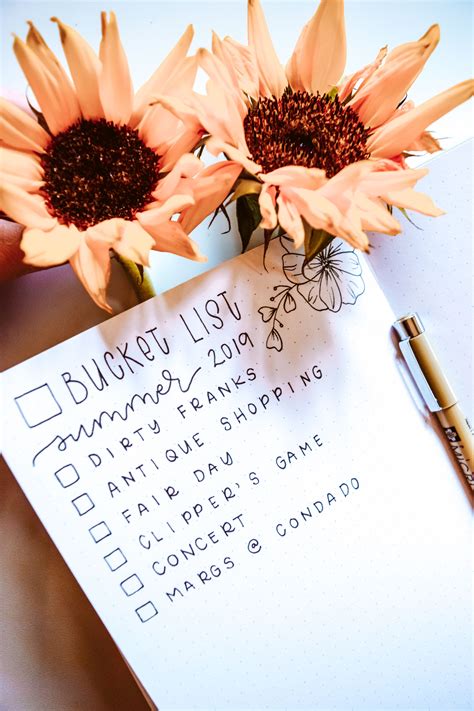 BUCKET LIST
summer 2019
DIRTY FRANKS
ANTIQUE SHOPPING
FAIR DAY
CLIPPER'S GAME
CONCERT
MARGS @ CONDADO